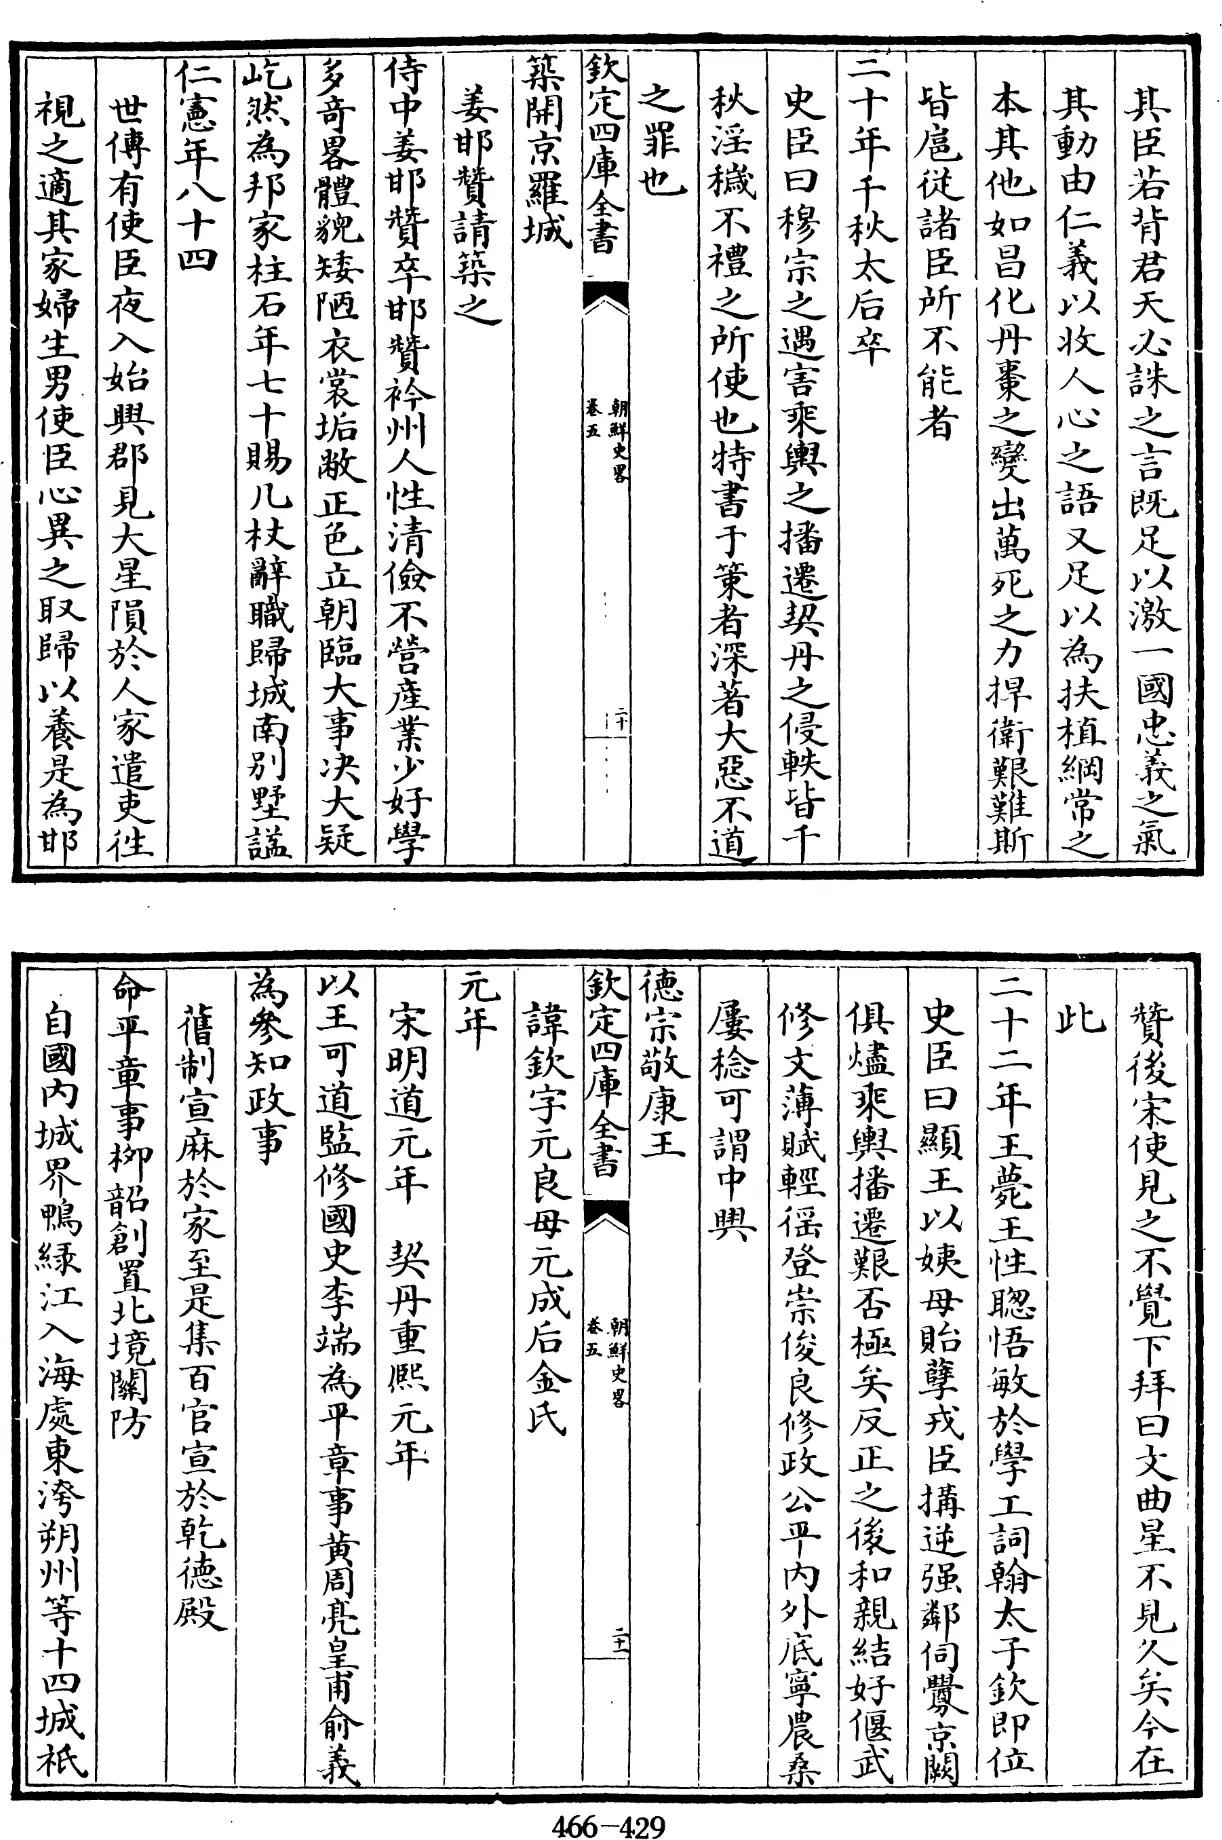 其臣若背君天必誅之言既足以激一國忠義之氣
其動由仁義以收人心之語又足以為扶植綱常之
本其他如昌化丹棗之變出萬死之力捍衛艱難斯
皆扈從諸臣所不能者
二十年千秋太后卒
史臣曰穆宗之遇害乘輿之播遷契丹之侵軼皆千
秋淫穢不禮之所使也特書于策者深著大惡不道
之罪也
欽定四庫全書
朝鮮史畧
卷五
二十
築開京羅城
姜邯贊請築之
侍中姜邯贊卒邯贊衿州人性清儉不營産業少好學
多奇畧體貌矮陋衣裳垢敝正色立朝臨大事决大疑
屹然為邦家柱石年七十賜几杖辭職歸城南别墅諡
仁憲年八十四
世傳有使臣夜入始興郡見大星隕於人家遣吏徃
視之適其家婦生男使臣心異之取歸以養是為邯
贊後宋使見之不覺下拜曰文曲星不見久矣今在
此
二十二年王薨王性聰悟敏於學工詞翰太子欽即位
史臣曰顯王以姨母貽孽戎臣搆逆强鄰伺釁京闕
俱燼乘輿播遷艱否極矣反正之後和親結好偃武
修文薄賦輕徭登崇俊良修政公平内外底寧農桑
屢稔可謂中興
德宗敬康王
欽定四庫全書
朝鮮史畧
卷五
二十一
諱欽字元良母元成后金氏
元年
宋明道元年 契丹重熙元年
以王可道監修國史李端為平章事黄周亮皇甫俞義
為參知政事
舊制宣麻於家至是集百官宣於乾德殿
命平章事柳韶創置北境關防
自國内城界鴨緑江入海處東洿朔州等十四城祇
466-429